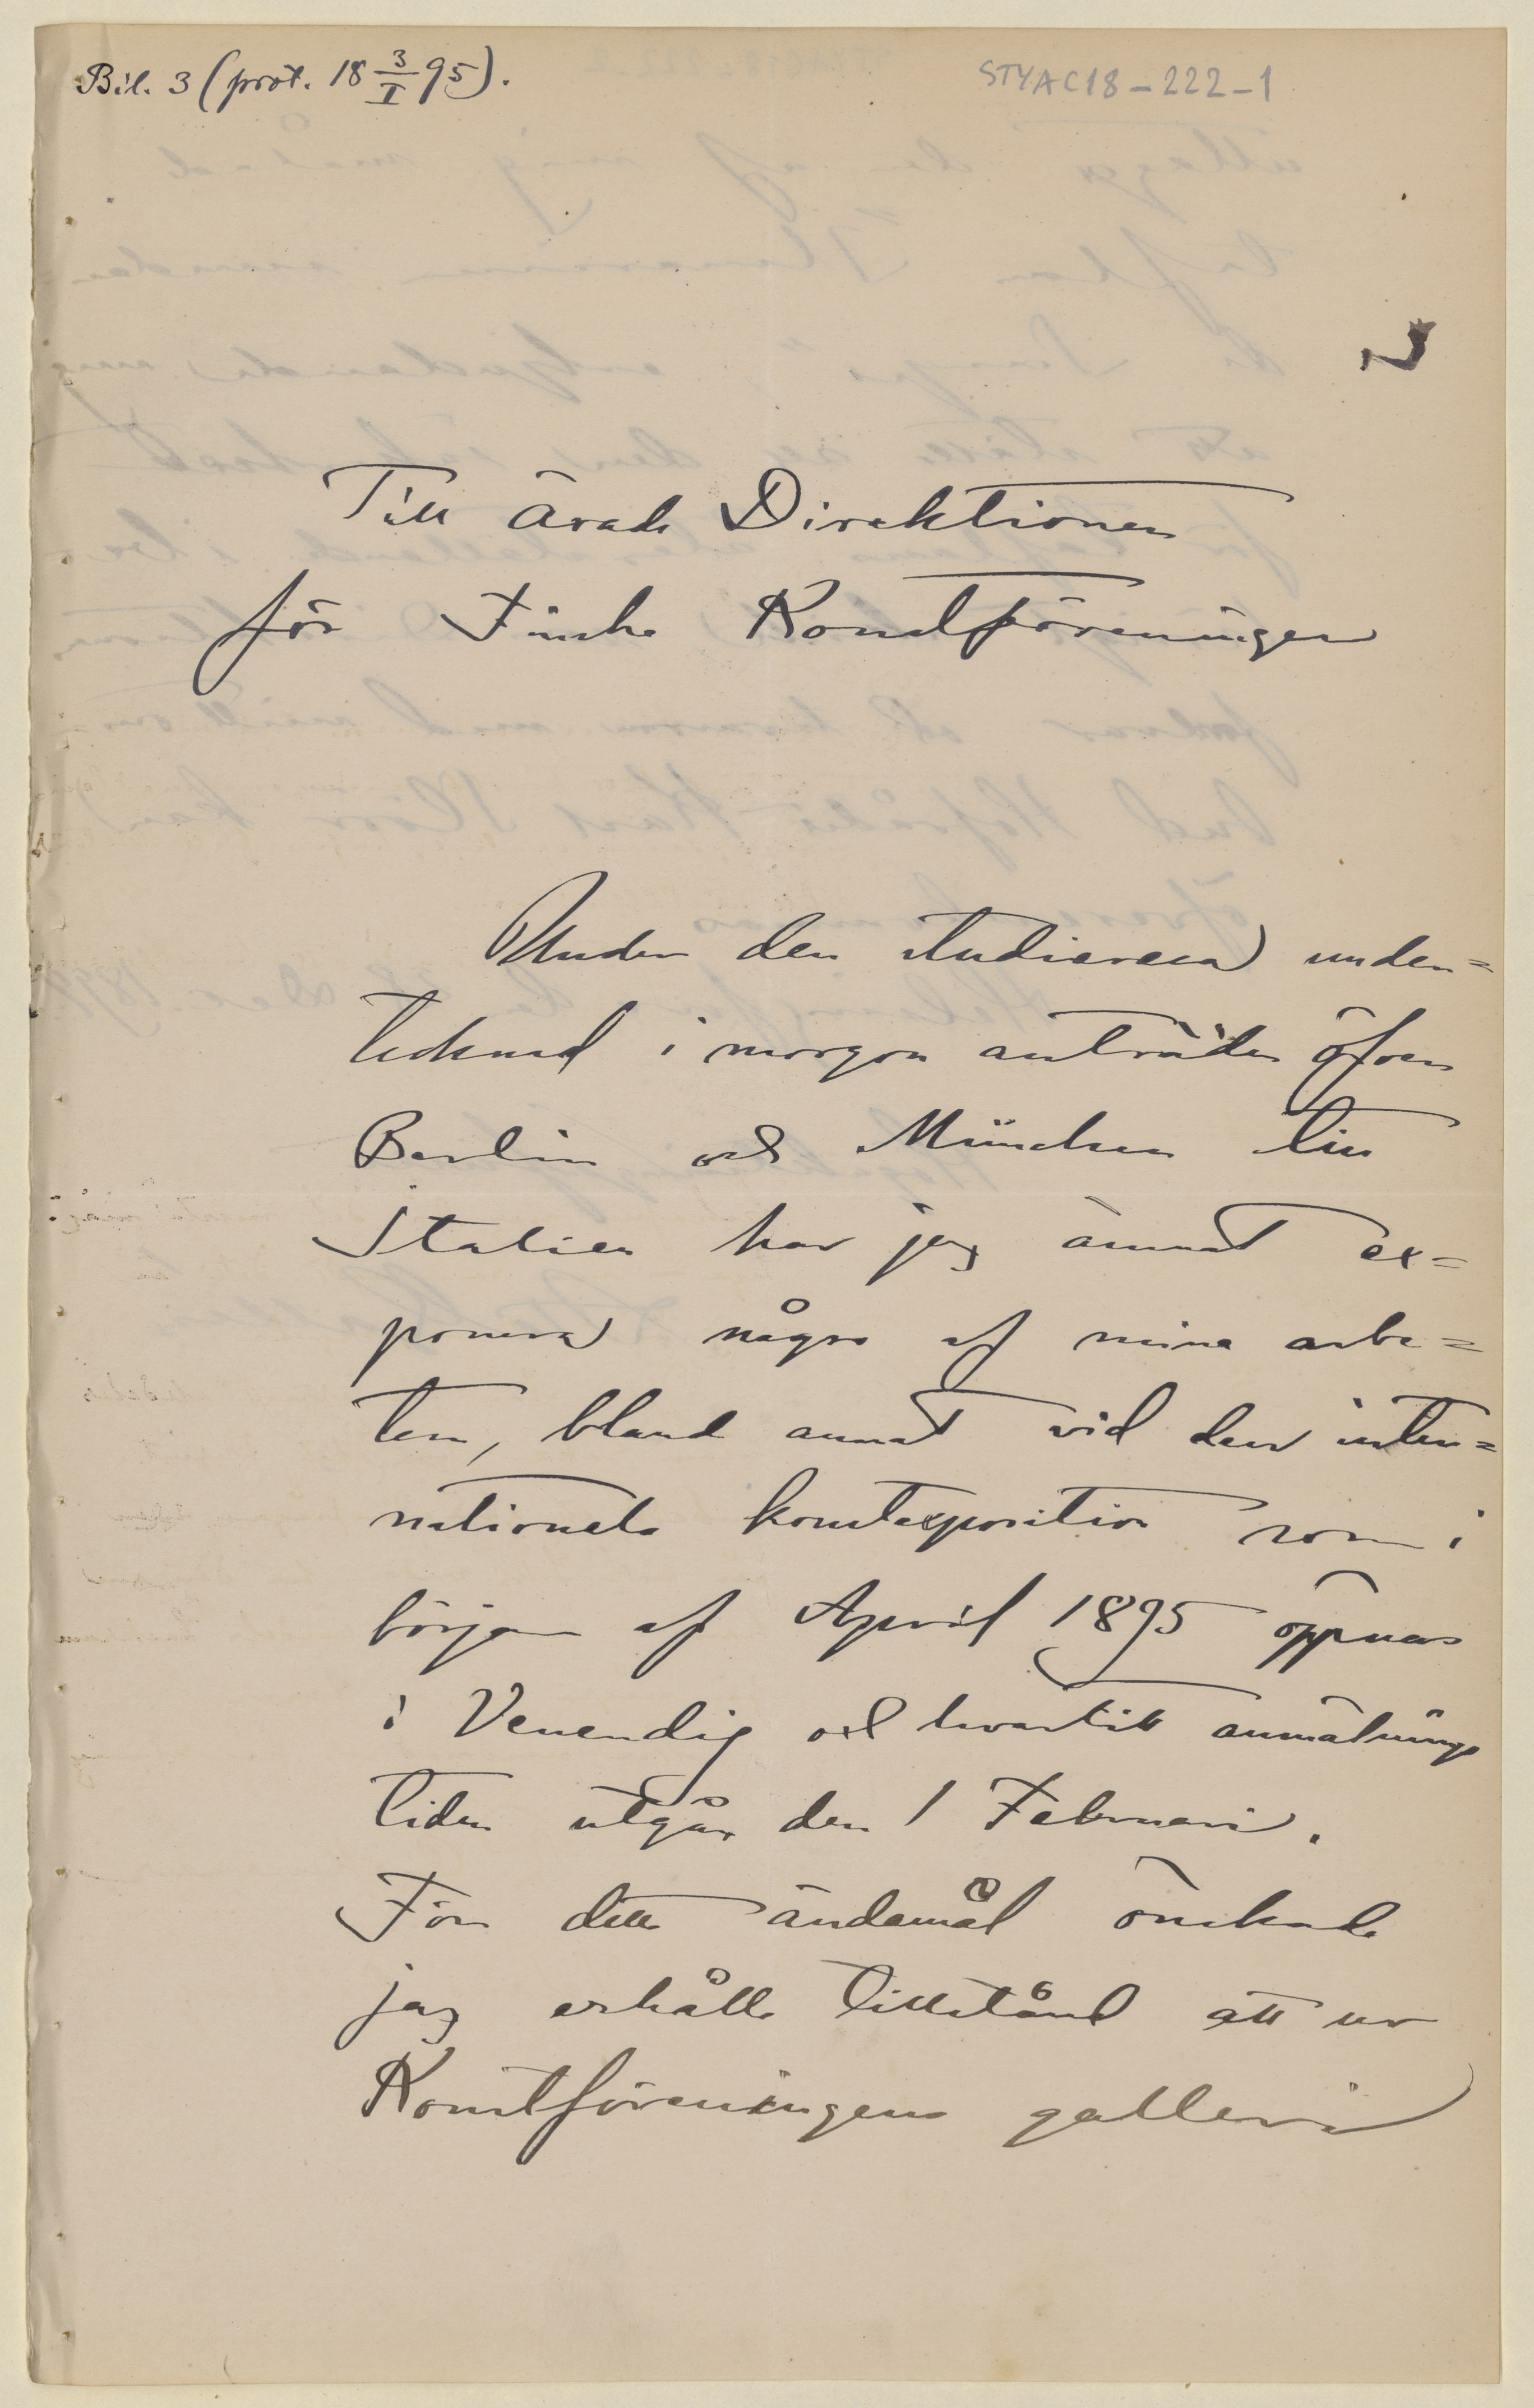 Bil. 3 (prot. 18 3/I 95).
STYAC18-222-1
Till Ärade Direktionen
för Finska Konstföreningen
Under den studieresa under=
tecknad i morgon anträder öfver
Berlin och München till
Italien har jag ämnat ex=
ponera några af mina arbe=
ten, bland annat vid den inter=
nationela konstexposition som i
början af April 1895 öppnas
i Venendig och hvartill anmälnings
tiden utgår den 1 Februari.
För detta ändamål önskade
jag erhålla tillstånd att ur
Konstföreningens galleri